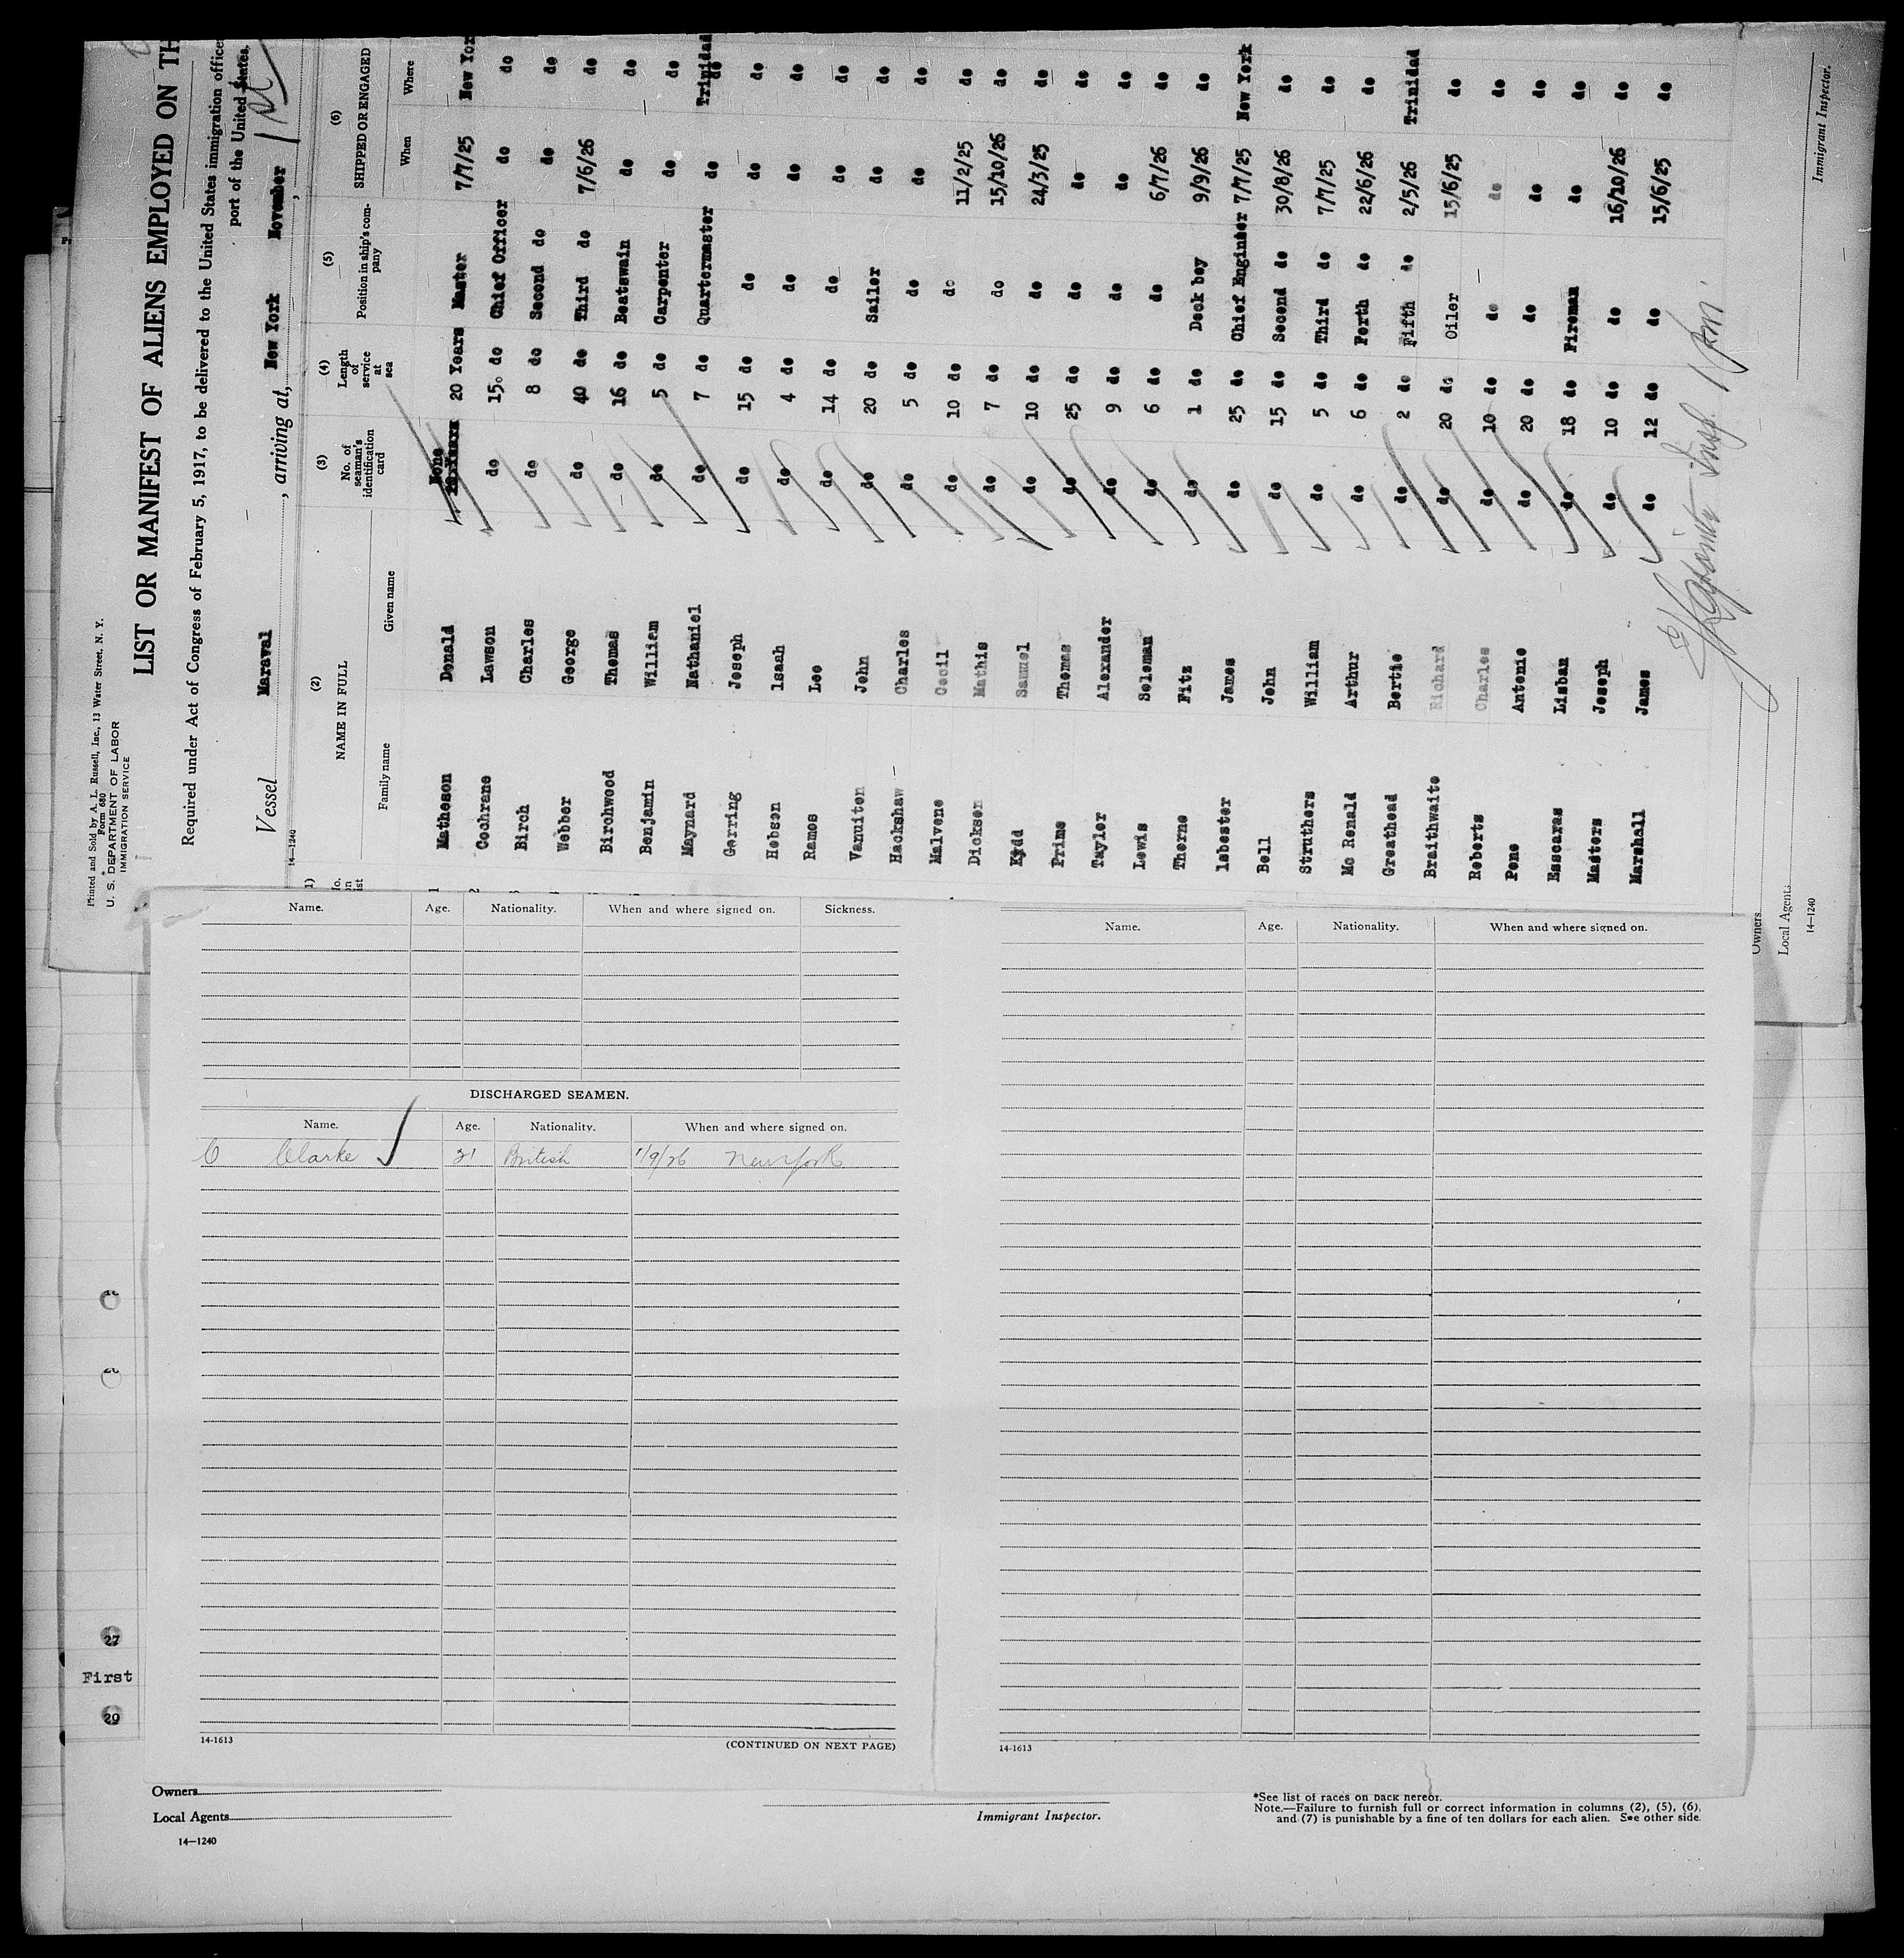 Printed and Sold by A. L. Russell, Inc., 13 Water Street, N. Y.
Form 680
U. S. DEPARTMENT OF LABOR
IMMIGRATION SERVICE
LIST OR MANIFEST OF ALIENS EMPLOYED ON TH
Required under Act of Congress of February 5, 1917, to be delivered to the United States immigration office
port of the United States,
Vessel Maraval, arriving at, New York November 1st,
14—1240
(2) (3) (4) (5) (6)
NAME IN FULL No. of seaman's identification card Length of service at sea Position in ship's company SHIPPED OR ENGAGED
Family name Given name When Where
1 Matheson Donald None 20 Years Master 7/7/25 New Yor
2 Cochrane Lawson do 15 do Chief Officer do do
Birch Charles do 8 do Second do do do
Webber George do 40 do Third do 7/6/26 do
Birchwood Thomas do 16 do Boatswain do do
Benjamin William do 5 do Carpenter do do
Maynard Nathaniel do 7 do Quartermaster do Trinidad
Gerring Joseph do 15 do do do do
Hobson Isaah do 4 do do do do
Ramos Leo do 14 do do do do
Vanuiten John do 20 do Sailor do do
Hackshaw Charles do 5 do do do do
Malvene Cecil do 10 do do 11/2/25 do
Dickson Mathis do 7 do do 15/10/26 do
Kydd Samuel do 10 do do 24/3/25 do
Prime Thomas do 25 do do do do
Taylor Alexander do 9 do do do do
Lewis Soloman do 6 do do 6/7/26 do
Thorne Fitz do 1 do Deck boy 9/9/26 do
Isbester James do 25 do Chief Enginber 7/7/25 New York
Bell John do 15 do Second do 30/8/26 do
Struthers William do 5 do Third do 7/7/25 do
Mc Ronald Arthur do 6 do Forth do 22/6/26 do
Greathead Bertie do 2 do Fifth do 2/5/26 Trinidad
Braithwaite Richard do 20 do Oiler 15/6/25 do
Roberts Charles do 10 do do do do
Pone Antonio do 20 do do do do
Escaras Lisban do 18 do Fireman do do
Masters Joseph do 10 do do 16/10/26 do
Marshall James do 12 do do 15/6/25 do
Immigrant Inspector.
Owners
Local Agents
14—1240
Name. Age. Nationality. When and where signed on. Sickness.
DISCHARGED SEAMEN.
Name. Age. Nationality. When and where signed on.
C Clarke 31 British 1/9/26 New York
14-1613
(CONTINUED ON NEXT PAGE)
Name. Age. Nationality. When and where signed on.
14-1613
27
First
29
Owners
Local Agents
14—1240
Immigrant Inspector.
*See list of races on back hereof.
Note.—Failure to furnish full or correct information in columns (2), (5), (6),
and (7) is punishable by a fine of ten dollars for each alien. See other side.